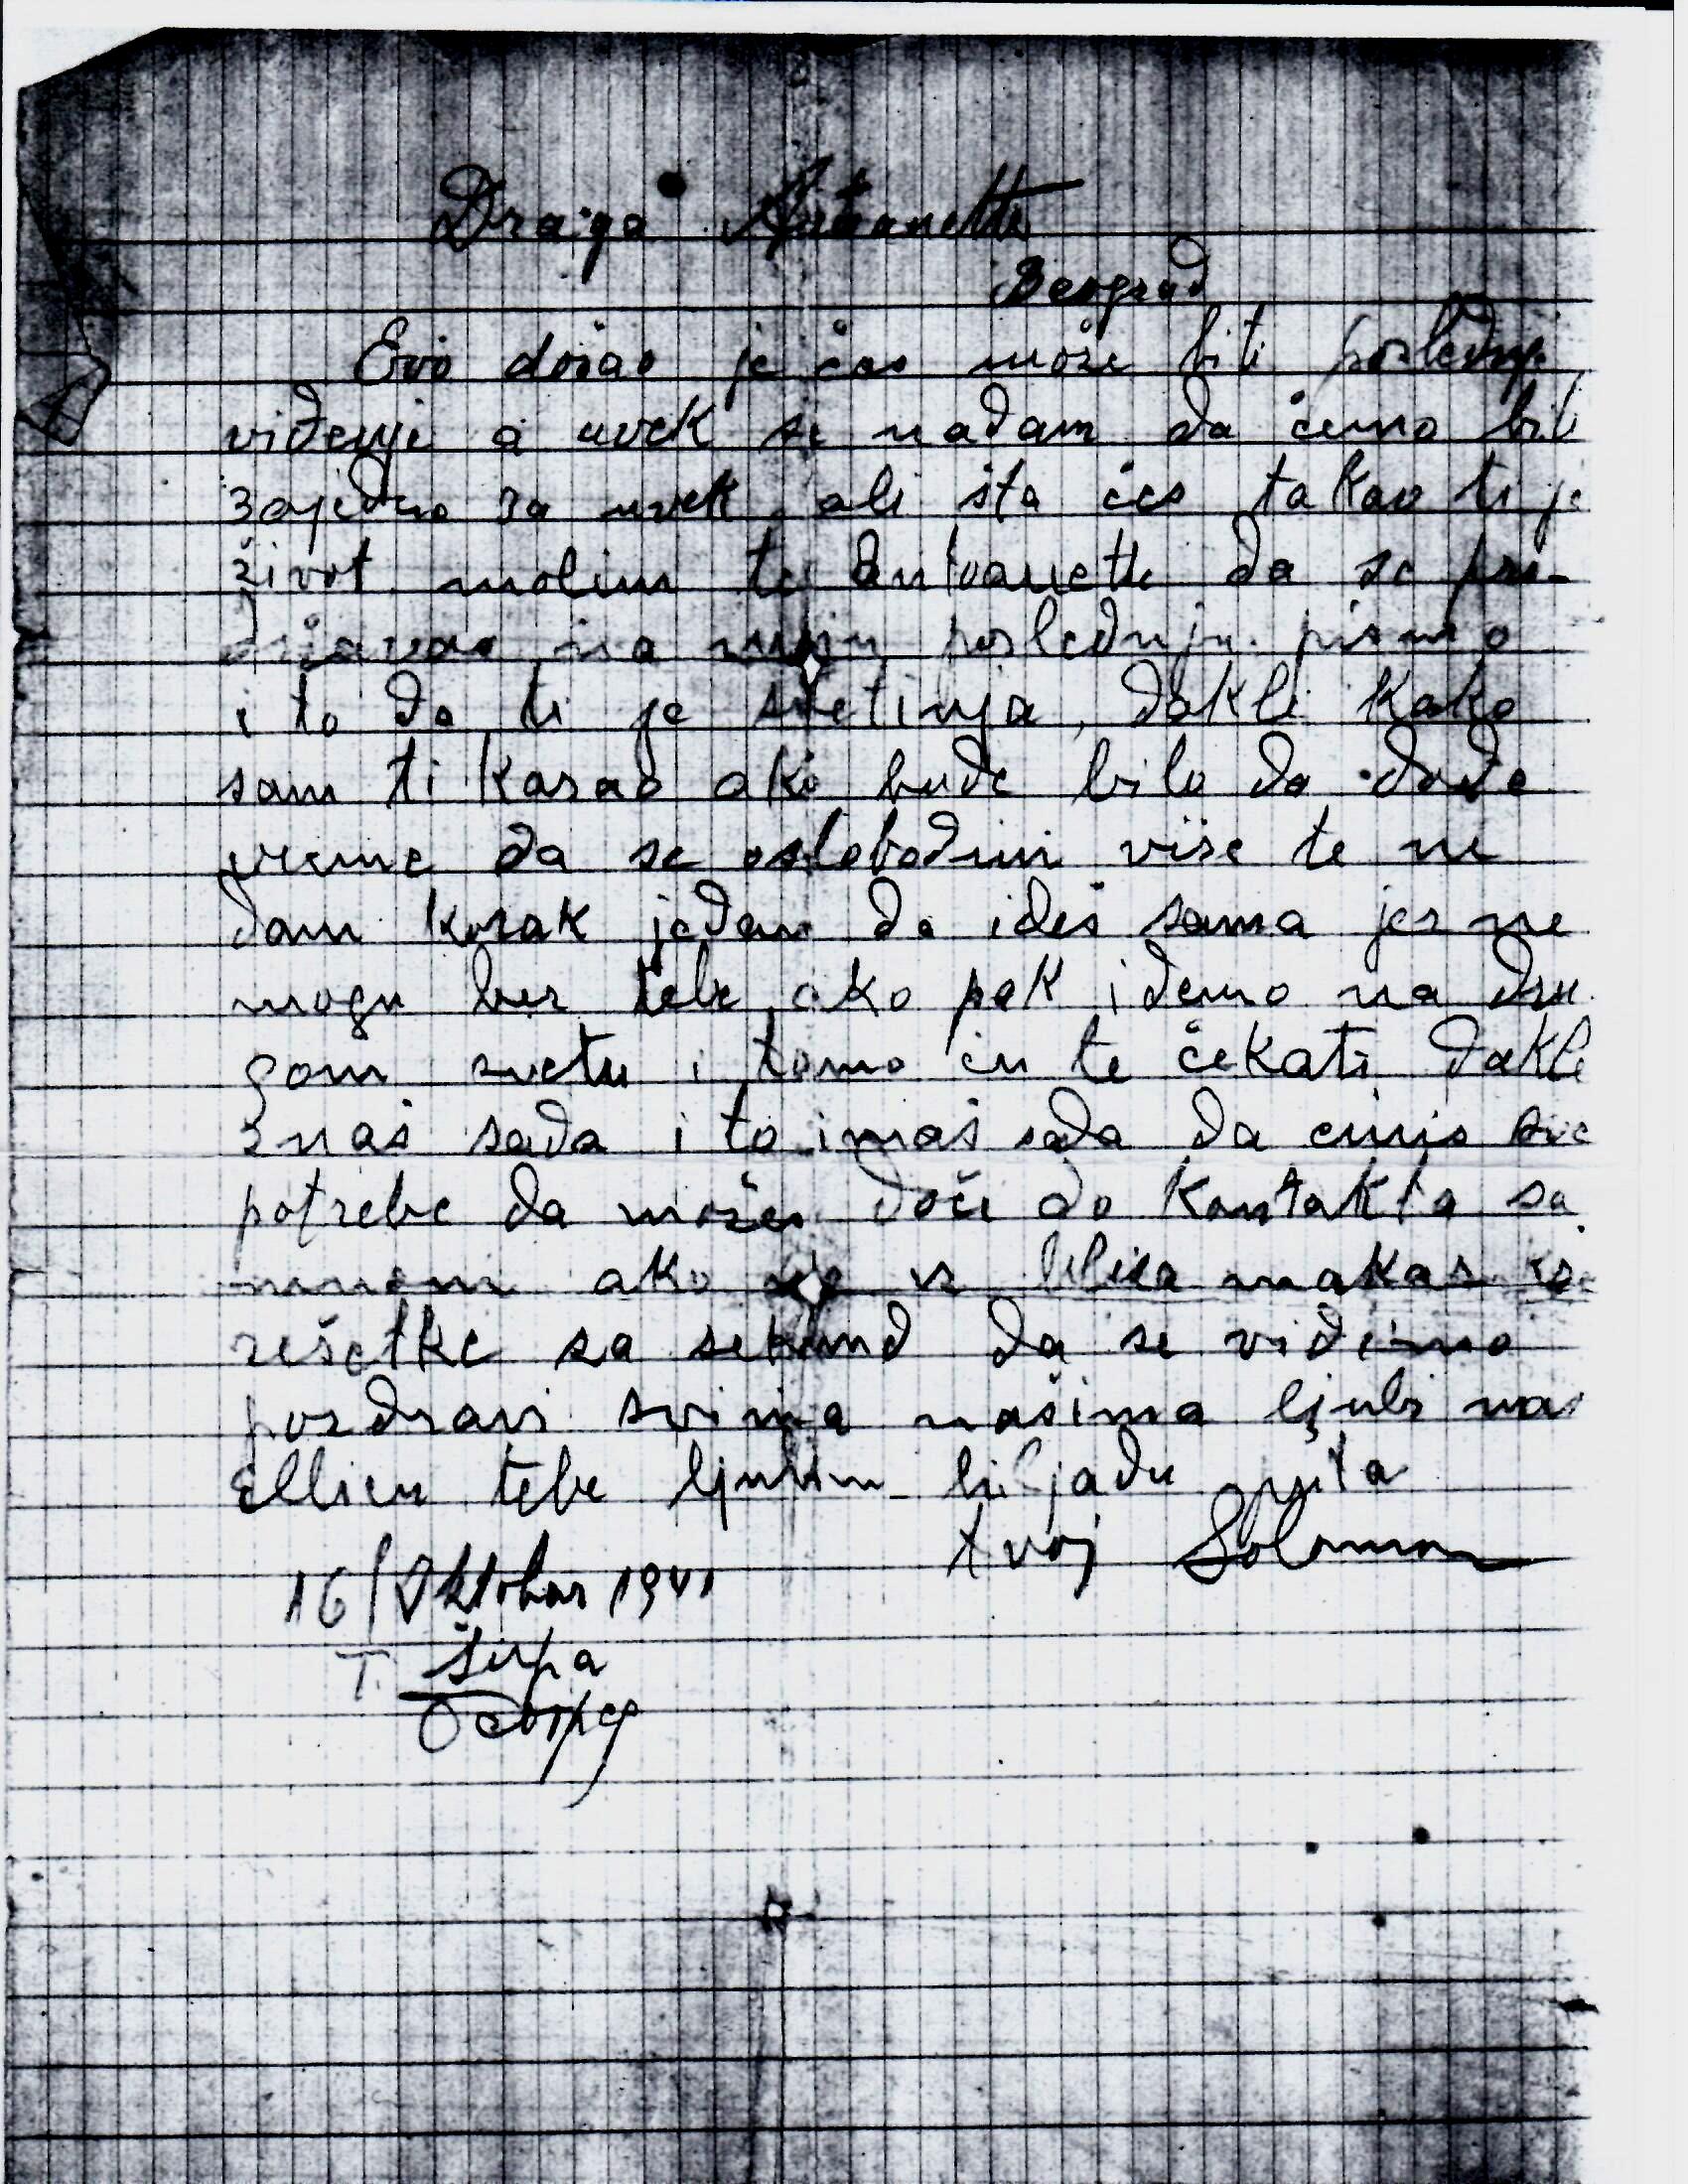 Draga Antoanette
Beograd
Evo došao je čas može biti poslednje
viđenje a uvek se nadam da ćemo biti
zajedno za uvek ali šta ćes takao ti je
život molim te Antoanette da se pri-
državaš na moju poslednju pismo
i to da ti je svetinja, dakle kako
sam ti kazao ako bude bilo da dođe
vreme da se oslobodim više te ne
dam korak jedan da ideš sama jer ne
mogu bez tebe ako pak idemo na dru
gom svetu i tamo ću te čekati dakle
znaš sada i to imaš sada da činiš sve
potrebe da možeš doći do kontakta sa
mnom ako iz blica makar
rešetke za sekund da se vidimo
pozdravi svima našima ljubi naš
Ellicu tebe ljubim hiljadu puta
tvoj Solomon
16/Oktobar 1941
T. šupa